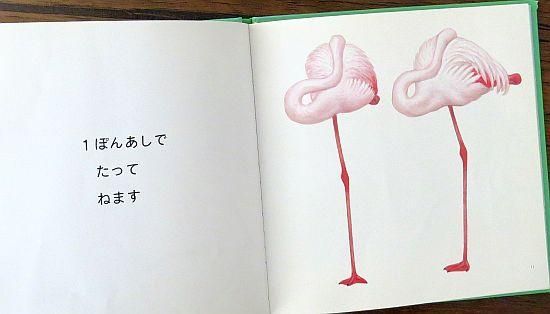 1ぽんあしで
たって
ねます